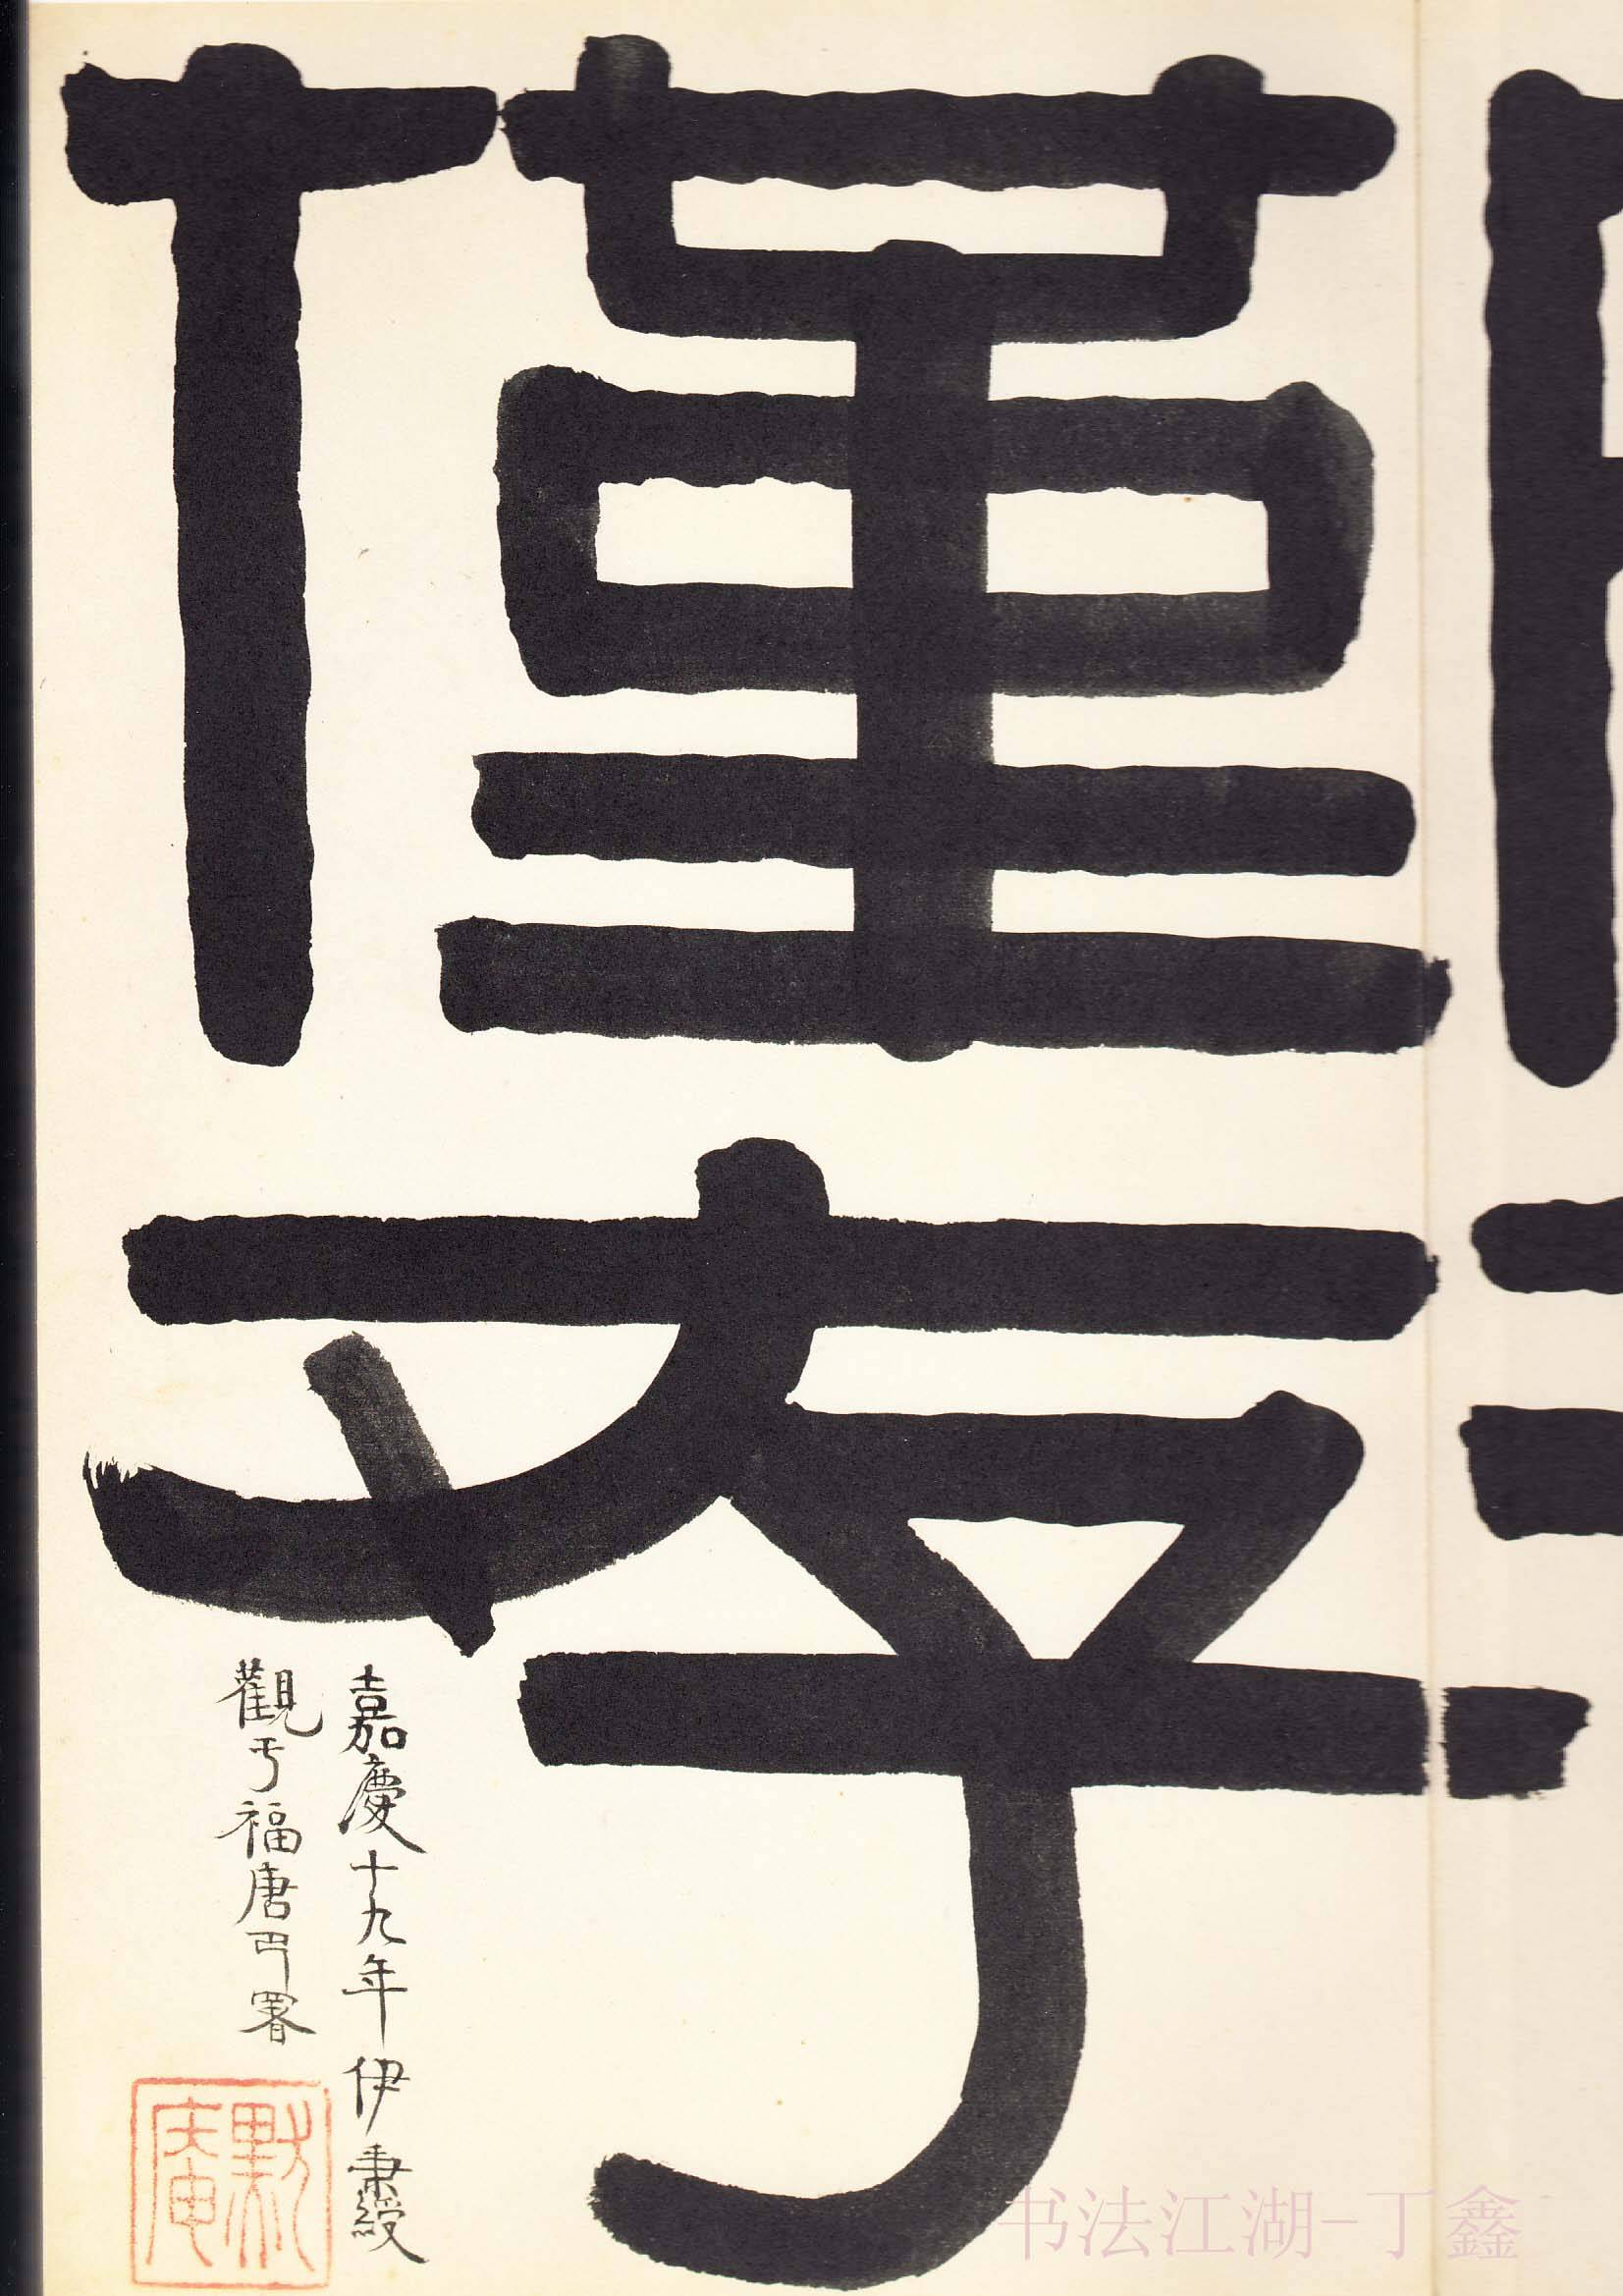 僅存
嘉慶十九年伊秉綬
觀于福唐署
默庵
书法江湖-丁鑫